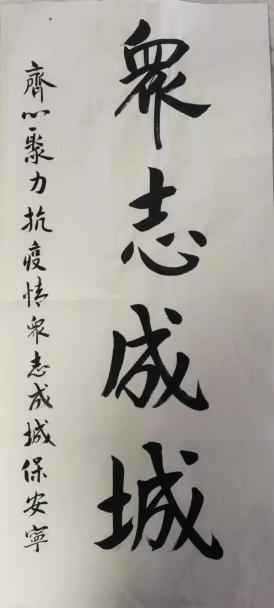 眾志成城
齊心聚力抗疫情眾志成城保安寧